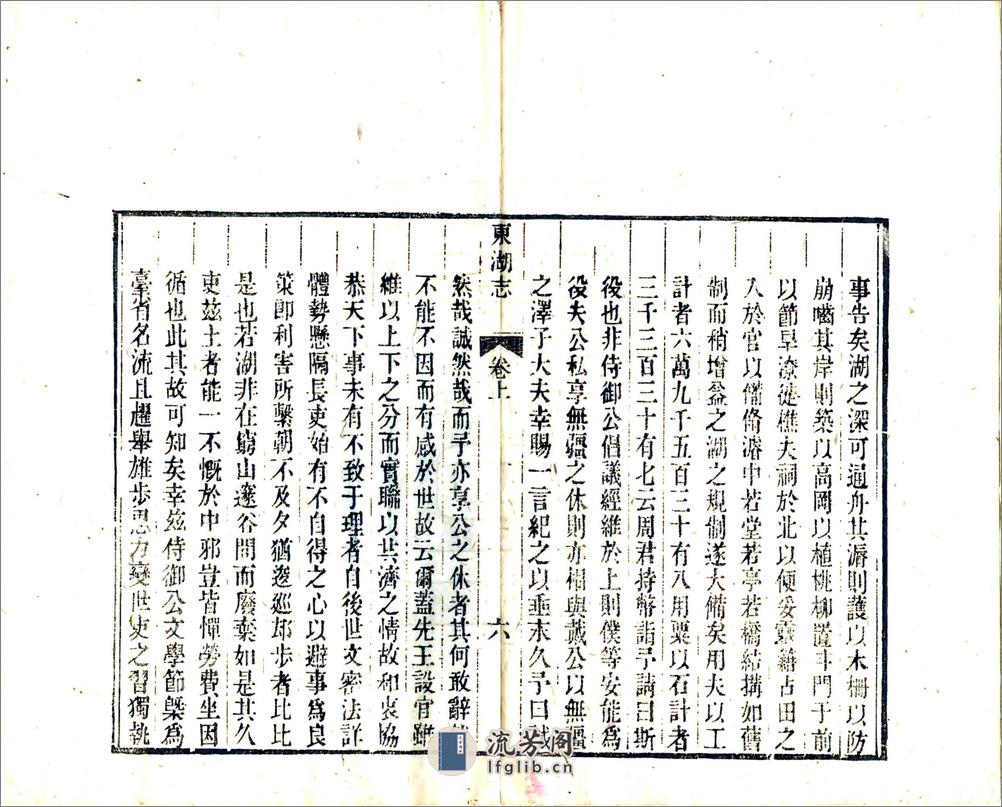 事告矣湖之深可通舟其漘則護以木柵以防
崩嚙其岸則築以高岡以植桃柳置斗門于前
以節旱潦徙樵夫祠於北以便妥靈籍占田之
入於官以備脩濬中若堂若亭若橋結搆如舊
制而稍增益之湖之規制遂大備矣用夫以工
計者六萬九千五百三十有八用粟以石計者
三千三百三十有七云周君持幣詣予請曰斯
役也非侍御公倡議經維於上則僕等安能爲
役夫公私享無疆之休則亦相與戴公以無疆
之澤子大夫幸賜一言紀之以垂末久予曰誠
東湖志
卷上
六
然哉誠然哉而予亦享公之休者其何敢辭
不能不因而有感於世故云爾蓋先王設官雖
維以上下之分而實聯以共濟之情故和衷協
恭天下事未有不致于理者自後世文密法詳
體勢懸隔長吏始有不自得之心以避事爲良
策卽利害所繫朝不及夕猶逡巡却步者比比
是也若湖非在窮山邃谷間而廢棄如是其久
吏茲土者能一不慨於中邪豈皆憚勞費坐因
循也此其故可知矣幸茲侍御公文學節槩爲
臺省名流且趯舉雄步思力變世吏之習獨執
流芳阁
lfglib.cn